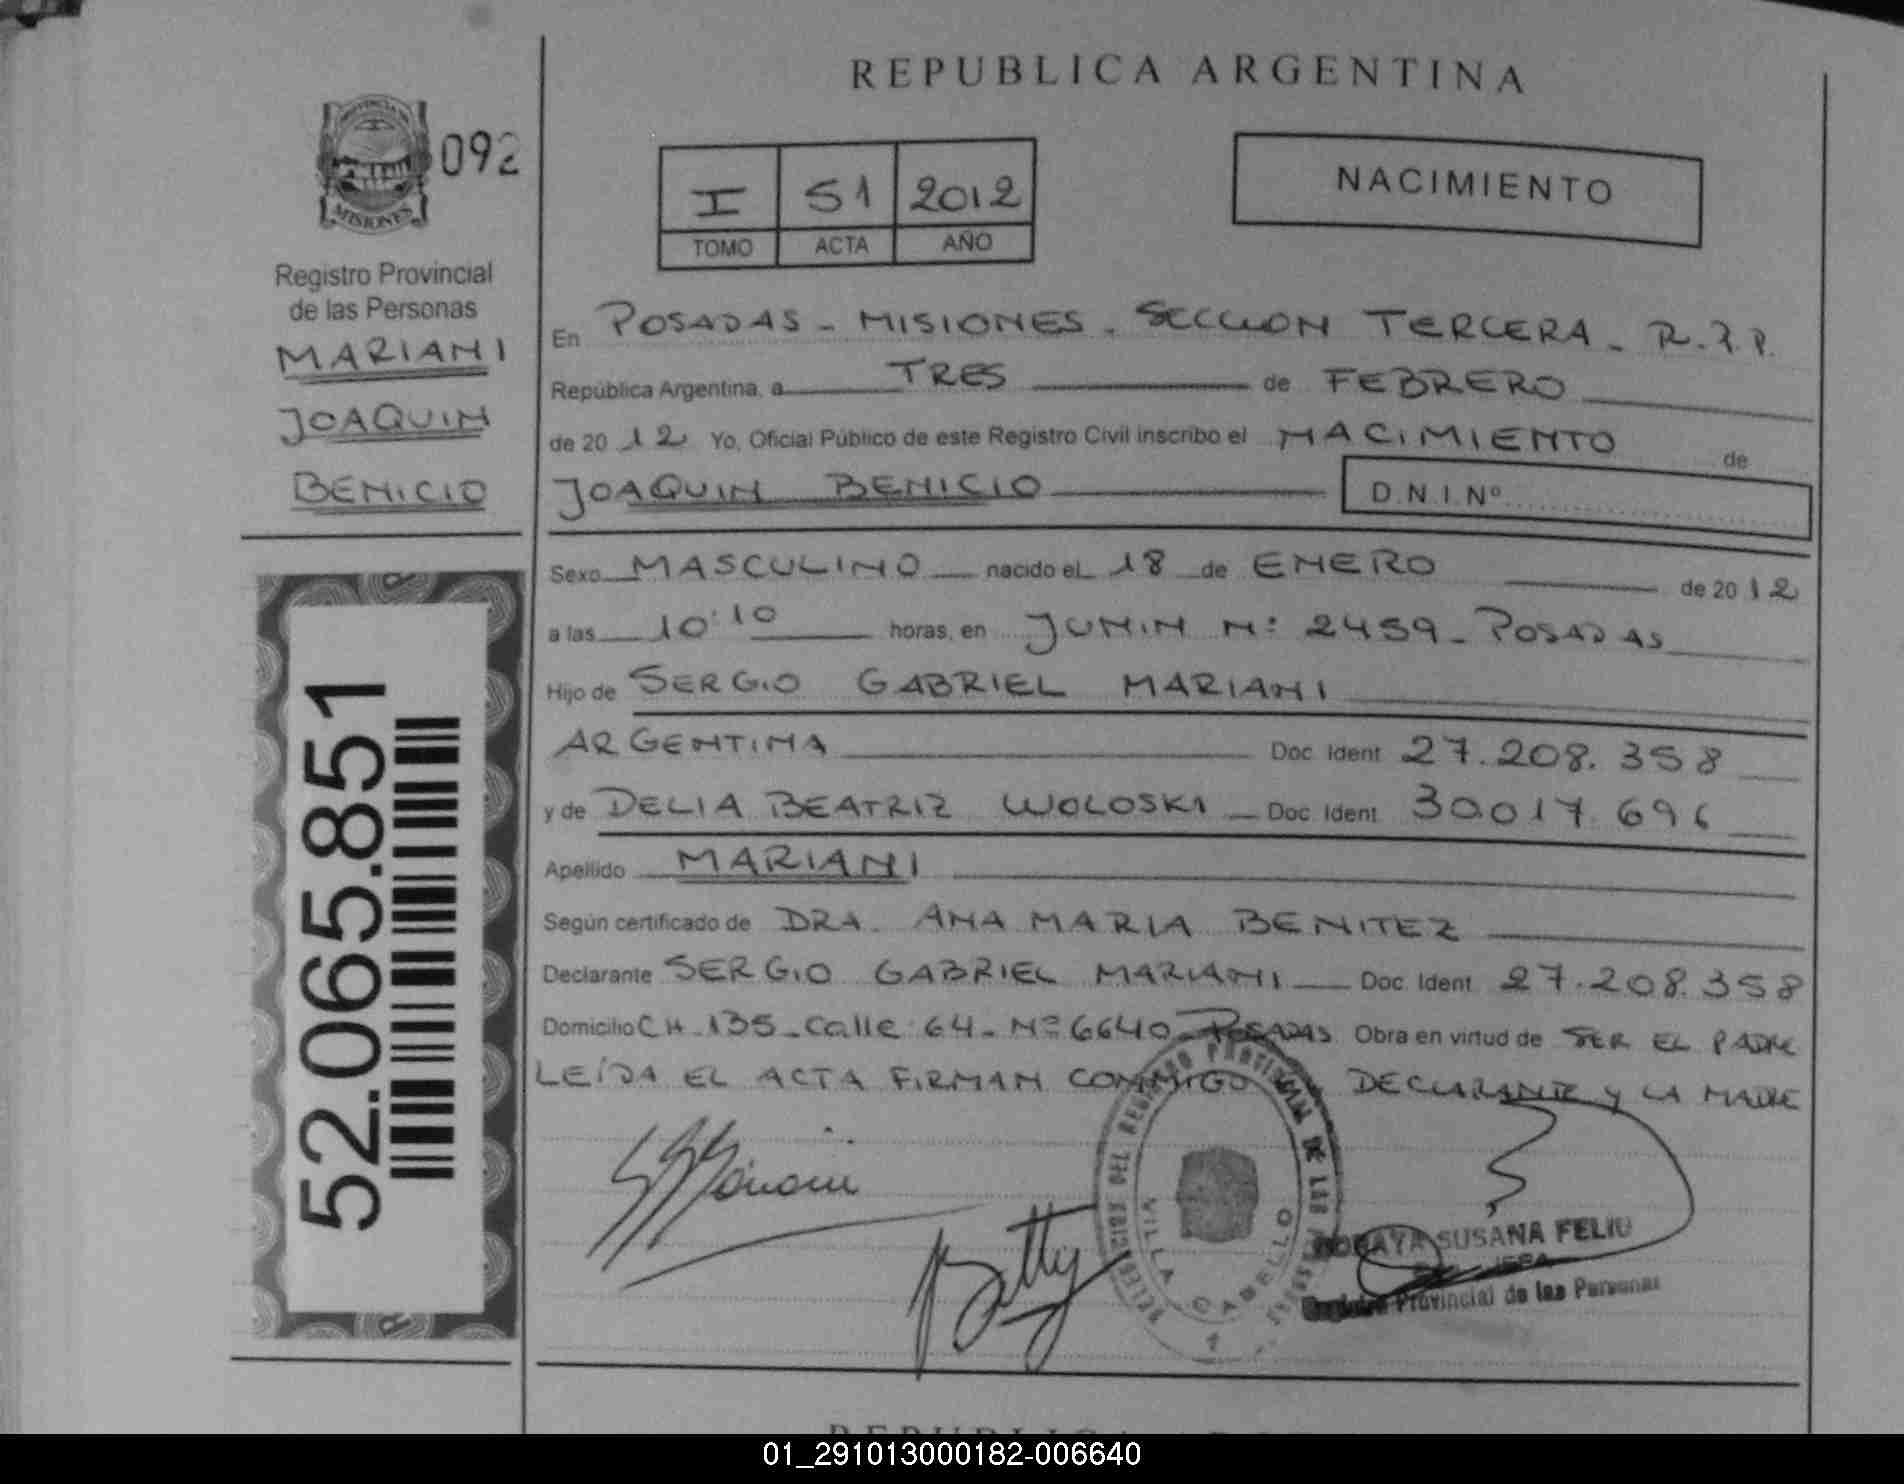 REPUBLICA ARGENTINA
PROVINCIA DE
MISIONES
092
I 51 2012
TOMO ACTA AÑO
NACIMIENTO
Registro Provincial
de las Personas
MARIANI
JOAQUIN
BENICIO
52.065.851
En POSADAS - MISIONES - SECCION TERCERA - R.P.P.
República Argentina, a TRES de FEBRERO
de 20 12 Yo, Oficial Público de este Registro Civil inscribo el NACIMIENTO de
JOAQUIN BENICIO D.N.I.Nº
Sexo MASCULINO nacido el 18 de ENERO de 20 12
a las 10:10 horas, en JUNIN Nº 2459 - POSADAS
Hijo de SERGIO GABRIEL MARIANI
ARGENTINA Doc. Ident. 27.208.358
y de DELIA BEATRIZ WOLOSKI Doc. Ident. 30.017.696
Apellido MARIANI
Según certificado de DRA. ANA MARIA BENITEZ
Declarante SERGIO GABRIEL MARIANI Doc. Ident. 27.208.358
Domicilio CH - 135 - Calle 64 - Nº 6640 - POSADAS Obra en virtud de SER EL PADRE
LEÍDA EL ACTA FIRMAN CONMIGO EL DECLARANTE Y LA MADRE
Mariani
Betty
DEL REGISTRO PROVINCIAL DE LAS PERSONAS
VILLA CABELLO
SORAYA SUSANA FELIU
JEFA
Registro Provincial de las Personas
01_291013000182-006640